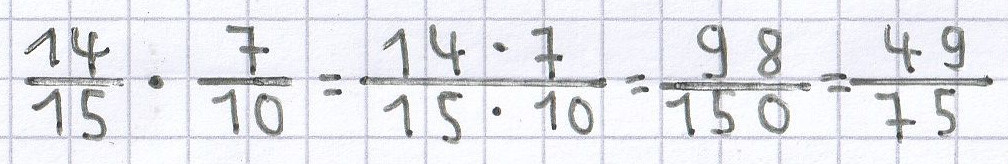 14/15 · 7/10 = 14 · 7/15 · 10 = 98/150 = 49/75